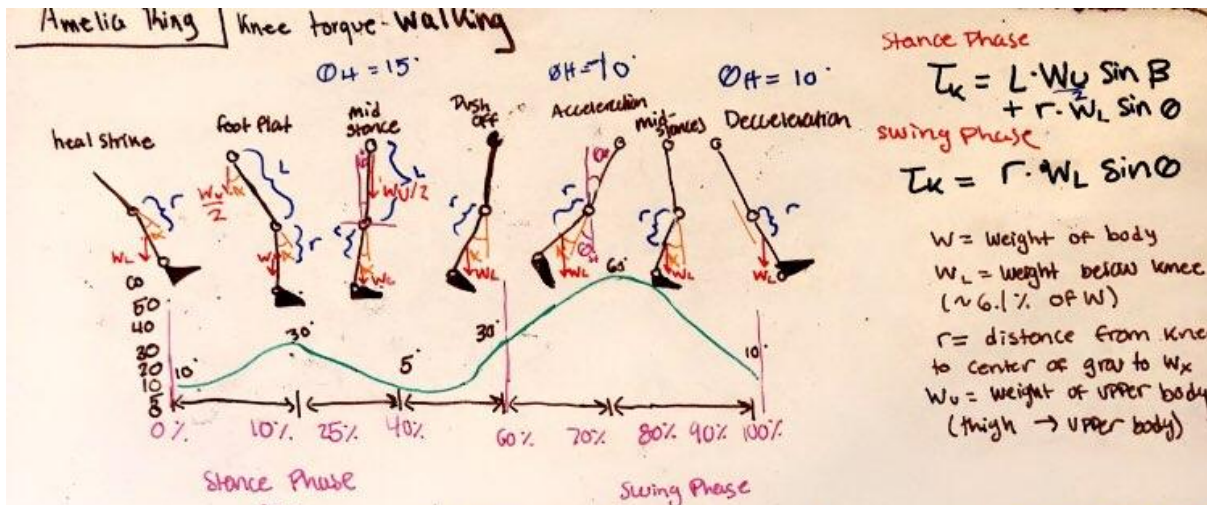 Amelia King
Knee torque - Walking
ØH = 15°
ØH = 10°
ØH = 10°
heal strike
foot flat
mid stance
Push Off
Acceleration
mid-stances
Decceleration
L
r
α
WL
Wu/2
α
L
r
α
Wu/2
r
α
WL
r
α
WL
r
α
WL
r
α
WL
r
WL
60
50
40
30
20
10
0
10°
30°
5°
30°
60°
10°
0%
10%
25%
40%
60%
70%
80%
90%
100%
Stance Phase
Swing Phase
Stance Phase
τK = L · Wu/2 Sin β
+ r · WL Sin Ø
Swing Phase
τK = r · WL Sin Ø
W = Weight of body
WL = weight below knee
(~6.1% of W)
r = distance from knee
to center of grav to Wx
Wu = weight of upper body
(thigh → upper body)